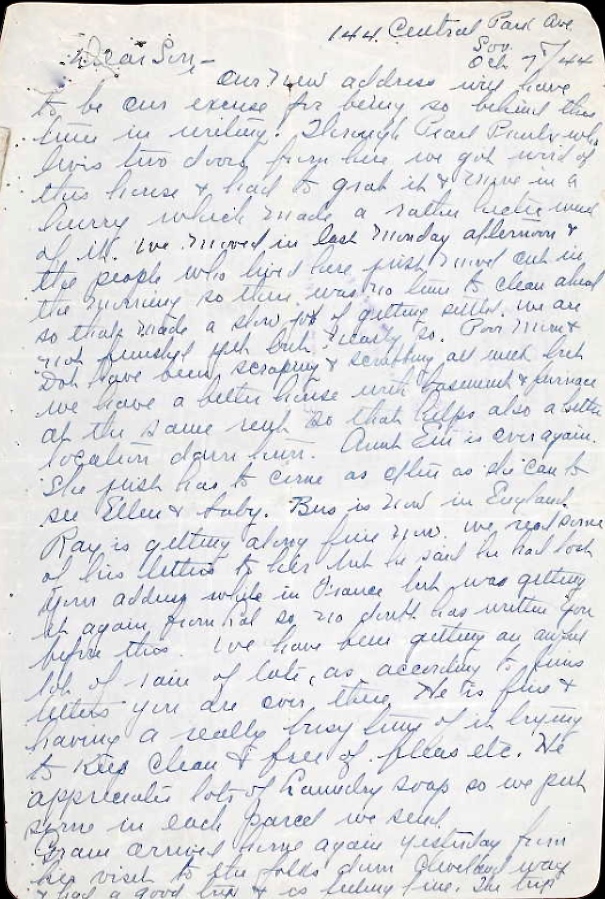 144 Central Park Ave.
Son.
Oct 7th/44
Dear Son –
Our new address will have
to be our excuse for being so behind this
time in writing. Through Pearl who
lives two doors from here we got word of
this house & had to grab it & move in a
hurry which made a rather hectic week
of it. We moved in last Monday afternoon &
the people who lived here just moved out in
the morning so there was no time to clean ahead
so that made a slow job of getting settled. We are
not finished yet but nearly so. Poor Mum &
Dot have been scraping & scrubbing all week but
we have a better house with basement & furnace
at the same rent so that helps also a better
location down here. Aunt Em is over again.
She just has to come as often as she can to
see Ellen & baby. Bus is now in England
Ray is getting along fine now. We read some
of his letters to her but he said he had lost
your address while in France but was getting
it again from so no doubt has written you
before this. We have been getting an awful
lot of rain of late, as according to
letters you are over there. He is fine &
having a really busy time of it trying
to keep clean & free of fleas etc. He
appreciates lots of Laundry soap so we put
some in each parcel we send.
Gram arrived home again yesterday from
her visit to the folks down Cleveland way
& had a good trip & is feeling fine. The trip